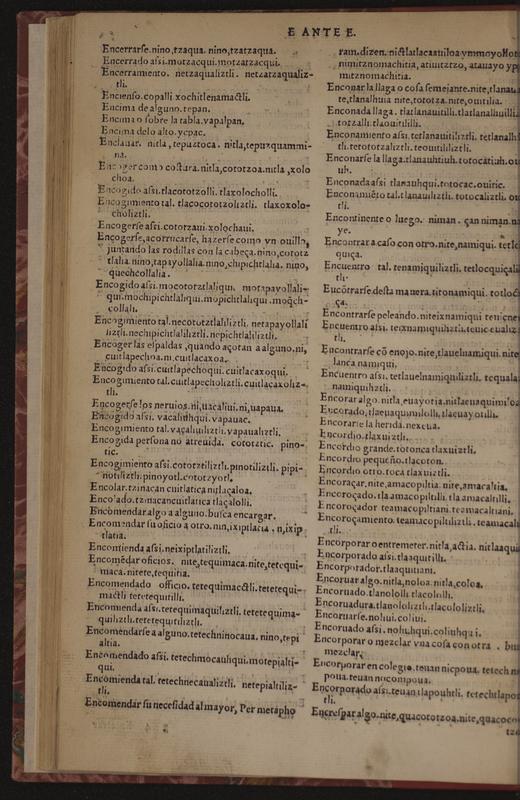 E ANTE E.
Encerrarse.nino,tzaqua. nino,tzatzaqua.
Encerrado assi.motzacqui.motzatzacqui.
Encerramiento. netzaqualiztli. netzatzaqualiz-
tli.
Encienso.copalli xochitlenamactli.
Encima de alguno.tepan.
Encima o sobre la tabla.vapalpan.
Encima delo alto.ycpac.
Enclauar. nitla, tepuztoca. nitla,tepuzquammi-
na.
Encoger como costura.nitla,cototzoa.nitla,xolo
choa.
Encogido assi.tlacototzolli. tlaxolocholli.
Encogimiento tal. tlacocototzoliztli. tlaxoxolo-
choliztli.
Encogerse assi.cototzaui.xolochaui.
Encogerse,acorrucarse, hazerse como vn ouillo,
juntando las rodillas con la cabeça.nino,cototz
tlalia.nino,tapayollalia.nino,chipichtlalia. nino,
quechcollalia.
Encogido assi.mocototztlaliqui. motapayollali-
qui.mochipichtlaliqui.mopichtlaliqui.moq̃ch-
collali.
Encogimiento tal.necototztlaliliztli. netapayollali
liztli.nechipichtlaliliztli.nepichtlaliliztli.
Encoger las espaldas ,quando açotan a alguno.ni,
cuitlapechoa.ni,cuitlacaxoa.
Encogido assi.cuitlapechoqui. cuitlacaxoqui.
Encogimiento tal.cuitlapecholiztli.cuitlacaxoliz-
tli.
Encogerse los neruios.ni,uacaliui.ni,uapaua.
Encogido assi. vacaliuhqui. vapauac.
Encogimiento tal. vacaliuiliztli. vapaualiztli.
Encogida persona no atreuida. cototztic. pino-
tic.
Encogimiento assi.cototztiliztli.pinotiliztli. pipi-
notiliztli.pinoyotl.cototzyotl.
Encolar.tzinacan cuitlatica nitlaçaloa.
Encolado.tzinacancuitlatica tlaçalolli.
Encomendar algo a alguno.busca encargar.
Encomendar su oficio a otro.nin,ixiptlatia . n,ixip
tlatia.
Encontienda assi.neixiptlatiliztli.
Encomẽdar oficios. nite,tequimaca.nite,tetequi-
maca.nitete,tequitia.
Encomendado officio. tetequimactli.tetetequi-
mactli tetetequitilli.
Encomienda assi.tetequimaquiliztli. tetetequima-
quiliztli.tetetequitiliztli.
Encomendarse a alguno.tetechninocaua. nino,tepi
altia.
Encomendado assi.tetechmocauhqui.motepialti-
qui.
Encomienda tal. tetechnecaualiztli. netepialtiliz-
tli.
Encomendar su necesidad al mayor, Per metapho
ram.dizen.
nimitznomachitia,
mitznomachitia.
Enconar la llaga o cosa semejante.nite,
te,tlanalhuia nite,tototza.nite,ouitilia.
Enconada llaga.
totzalli.tlaouitililli.
Enconamiento assi.
tli.tetototzaliztli.teouitililiztli.
Enconarse la llaga.
uh.
Enconada assi tlanauhqui.totocac.ouitic.
tli.
Encontinente o luego. niman . çan niman.
ye.
Encontrar a caso con otro.nite,namiqui.
quiça.
Encuentro tal.tenamiquiliztli.
tli.
Encõtrarse desta manera.titonamiqui.
ça.
Encontrarse peleando.niteixnamiqui
Encuentro assi.teixnamiquiliztli.
tli.
Encontrarse cõ enojo.nite,tlauelnamiqui.nite
lanca namiqui,
Encuentro assi. tetlauelnamiquiliztli.
namiquiliztli.
Encorar algo.nitla,euayotia.
Encorado,tlaeuaquimilolli,tlaeuayotilli.
Encorarse la herida.nexeua.
Encordio.tlaxuiztli.
Encordio grande.totonca tlaxuiztli.
Encordio pequeño.tlacoton.
Encordio otro.toca tlaxuiztli.
Encoraçar,nite,amacopiltia. nite,amacaltia.
Encoroçado.tla amacopiltilli. tla amacaltilli.
Encoroçador teamacopiltiani.teamacaltiani.
Encoroçamiento.teamacopiltiliztli.
tli.
Encorporar o entremeter.nitla,actia.
Encorporado assi.tlaaquitilli.
Encorporador.tlaaquitiani.
Encoruar algo.nitla,noloa.nitla,coloa.
Encoruado.tlanololli tlacololli.
Encoruadura.tlanololiztli.tlacololiztli.
Encoruarse.noliui.coliui.
Encoruado assi.noliuhqui.coliuhqui.
Encorporar o mezclar vna cosa con otra .
mezclar,
Encorporar en colegio.teuan nicpoua.
poua.teuan nocompoua.
Encorporado assi.teuan tlapouhtli.
tli.
Encrespar algo.nite,quacototzoa.